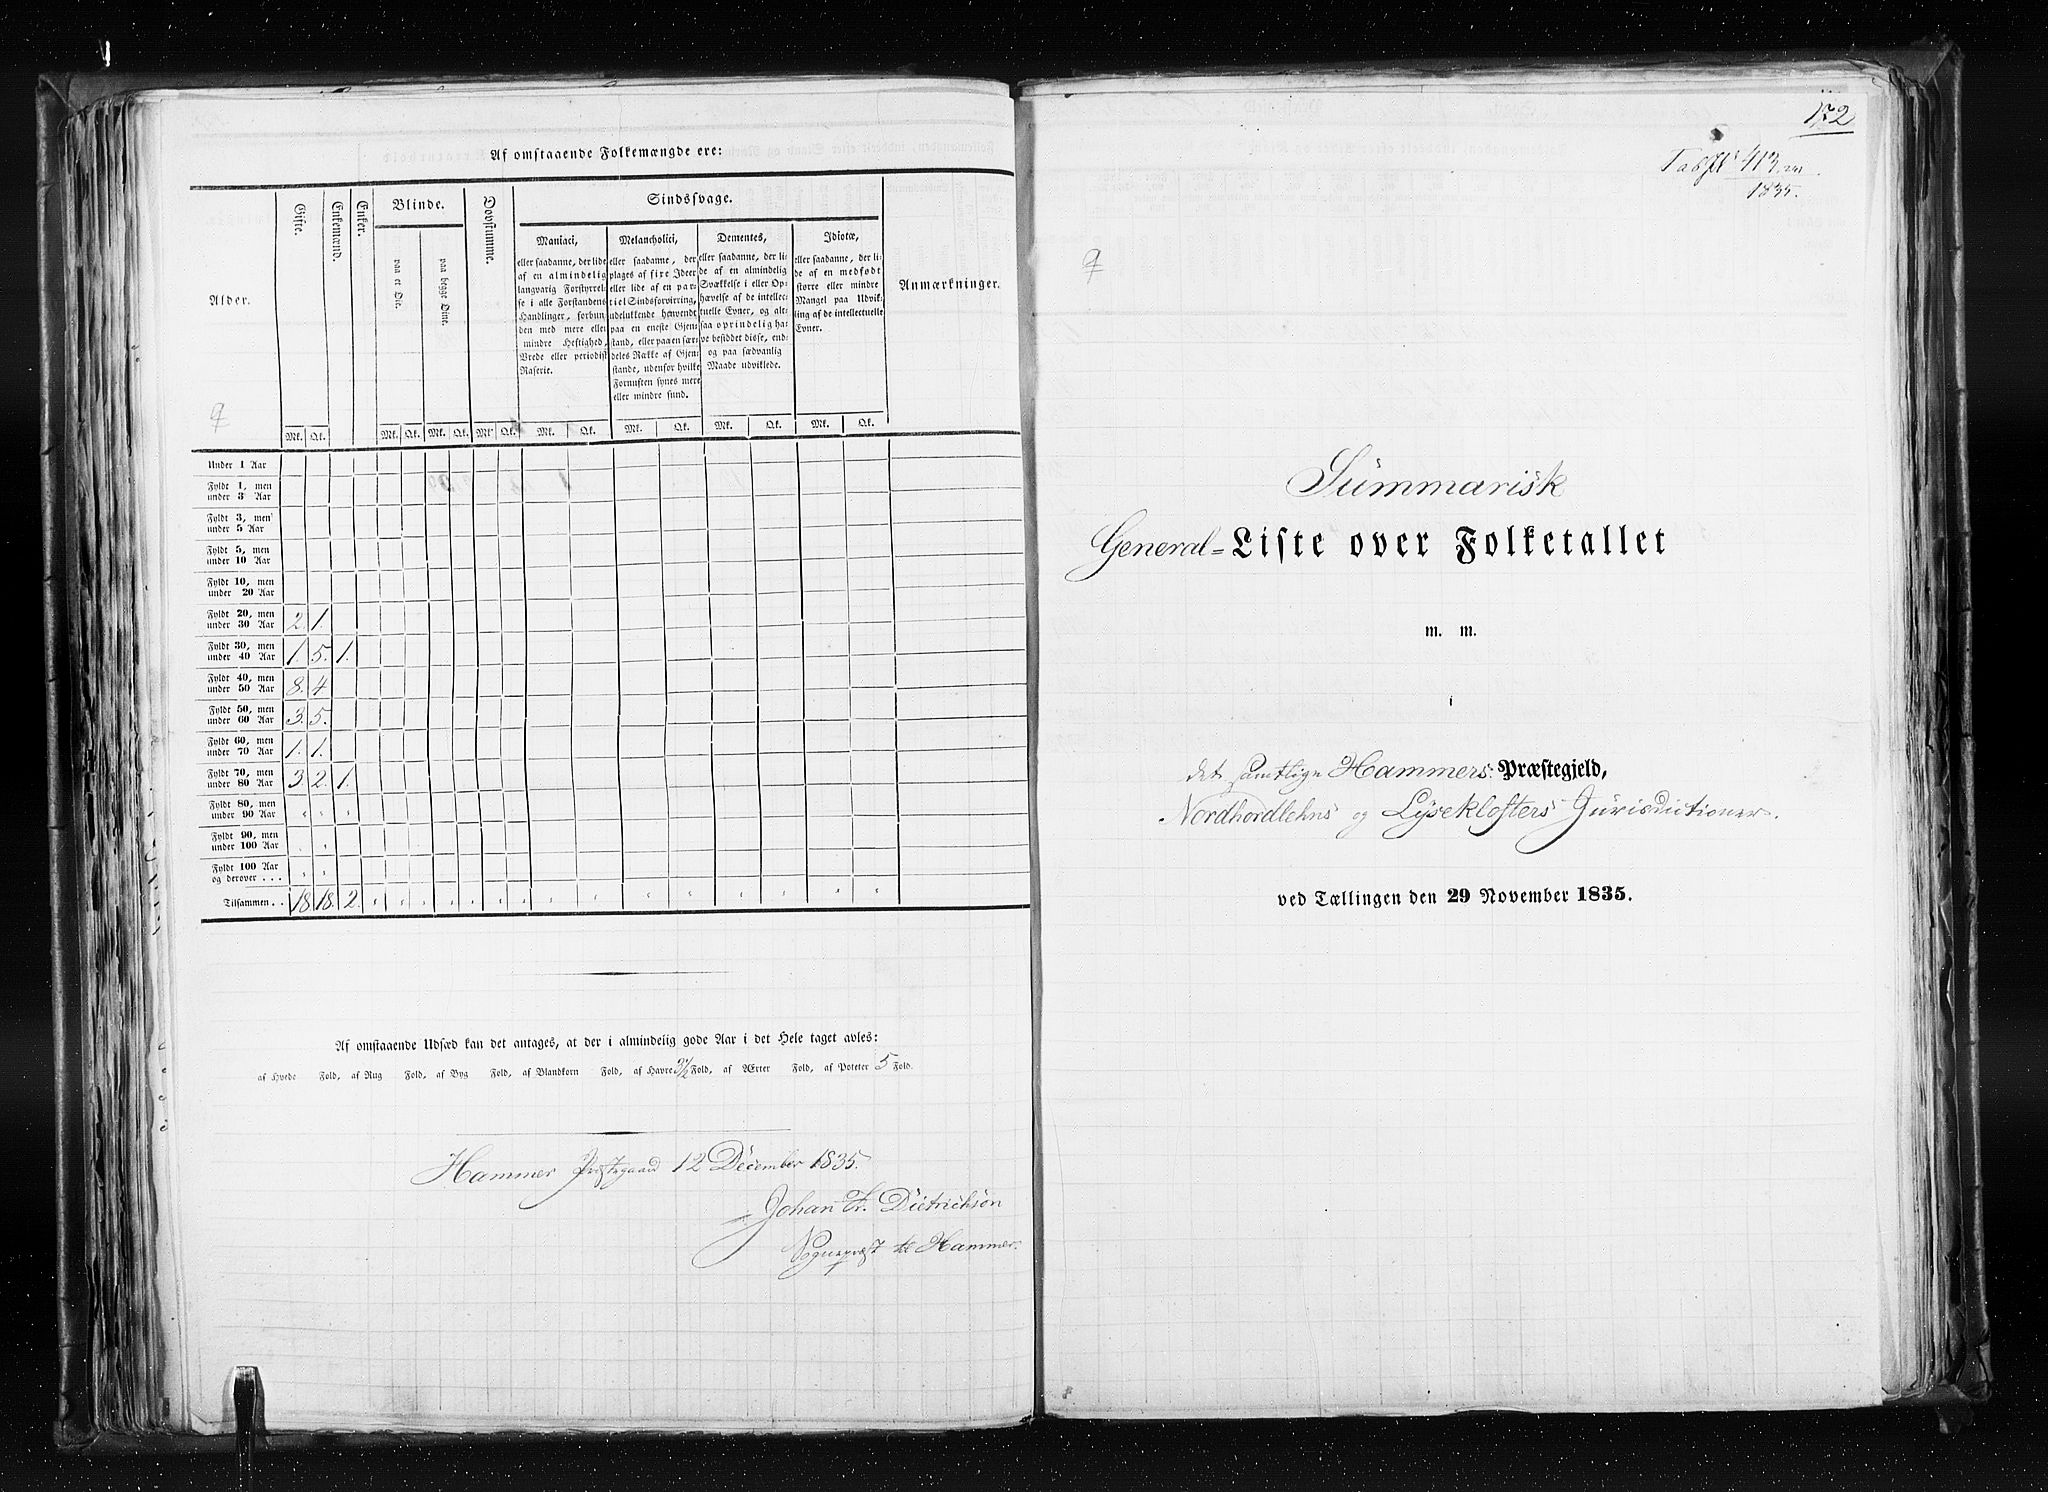 Af omstaaende Folkemængde ere:
Alder.
Gifte.
Enkemænd.
Enker.
Blinde.
paa et Øie.
paa begge Øine.
Døvstumme.
Sindssvage.
Maniaci,
eller saadanne, der lide
af en almindelig
langvarig Forstyrrel-
se i alle Forstandens
Handlinger, forbun-
den med mere eller
mindre Heftighed,
Vrede eller periodisk
Raserie.
Melancholici,
eller saadanne, der
plages af fixe Ideer
eller lide af en par-
tiel Sindsforvirring,
udelukkende henvendt
paa en eneste Gjen-
stand, eller paa en sær-
deles Række af Gjen-
stande, udenfor hvilke
Fornuften synes mere
eller mindre sund.
Dementes,
eller saadanne, der li-
de af en almindelig
Svækkelse i eller Op-
hævelse af de intellec-
tuelle Evner, og alt-
saa oprindelig ha-
ve besiddet disse, end-
og paa sædvanlig
Maade udviklede.
Idiotæ,
eller saadanne, der li-
de af en medfødt
større eller mindre
Mangel paa Udvik-
ling af de intellectuelle
Evner.
Anmærkninger.
Mk. Qk. Mk. Qk. Mk. Qk. Mk. Qk. Mk. Qk. Mk. Qk. Mk. Qk. Mk. Qk.
Under 1 Aar
Fyldt 1, men
under 3 Aar
Fyldt 3, men
under 5 Aar
Fyldt 5, men
under 10 Aar
Fyldt 10, men
under 20 Aar
Fyldt 20, men
under 30 Aar 2. 1.
Fyldt 30, men
under 40 Aar 1. 5. 1.
Fyldt 40, men
under 50 Aar 8. 4
Fyldt 50, men
under 60 Aar 3. 5.
Fyldt 60, men
under 70 Aar 1. 1.
Fyldt 70, men
under 80 Aar 3. 2. 1.
Fyldt 80, men
under 90 Aar " " "
Fyldt 90, men
under 100 Aar " "
Fyldt 100 Aar
og derover . . . " "
Tilsammen . . 18 18. 2. " " " " " " " " " " " " " "
Af omstaaende Udsæd kan det antages, at der i almindelig gode Aar i det Hele taget avles:
af Hvede Fold, af Rug Fold, af Byg Fold, af Blandkorn Fold, af Havre 3½ Fold, af Ærter Fold, af Poteter 5 Fold.
Hammer Præstegaard 12 December 1835.
Johan Fr. Dietrichson
Sognepræst til Hammer.
172
413
1835.
Summarisk
General-Liste over Folketallet
m. m.
i
det samtlige Hammers Præstegjeld,
Nordhordlehns og Lyseklosters Jurisdictioner.
ved Tællingen den 29 November 1835.